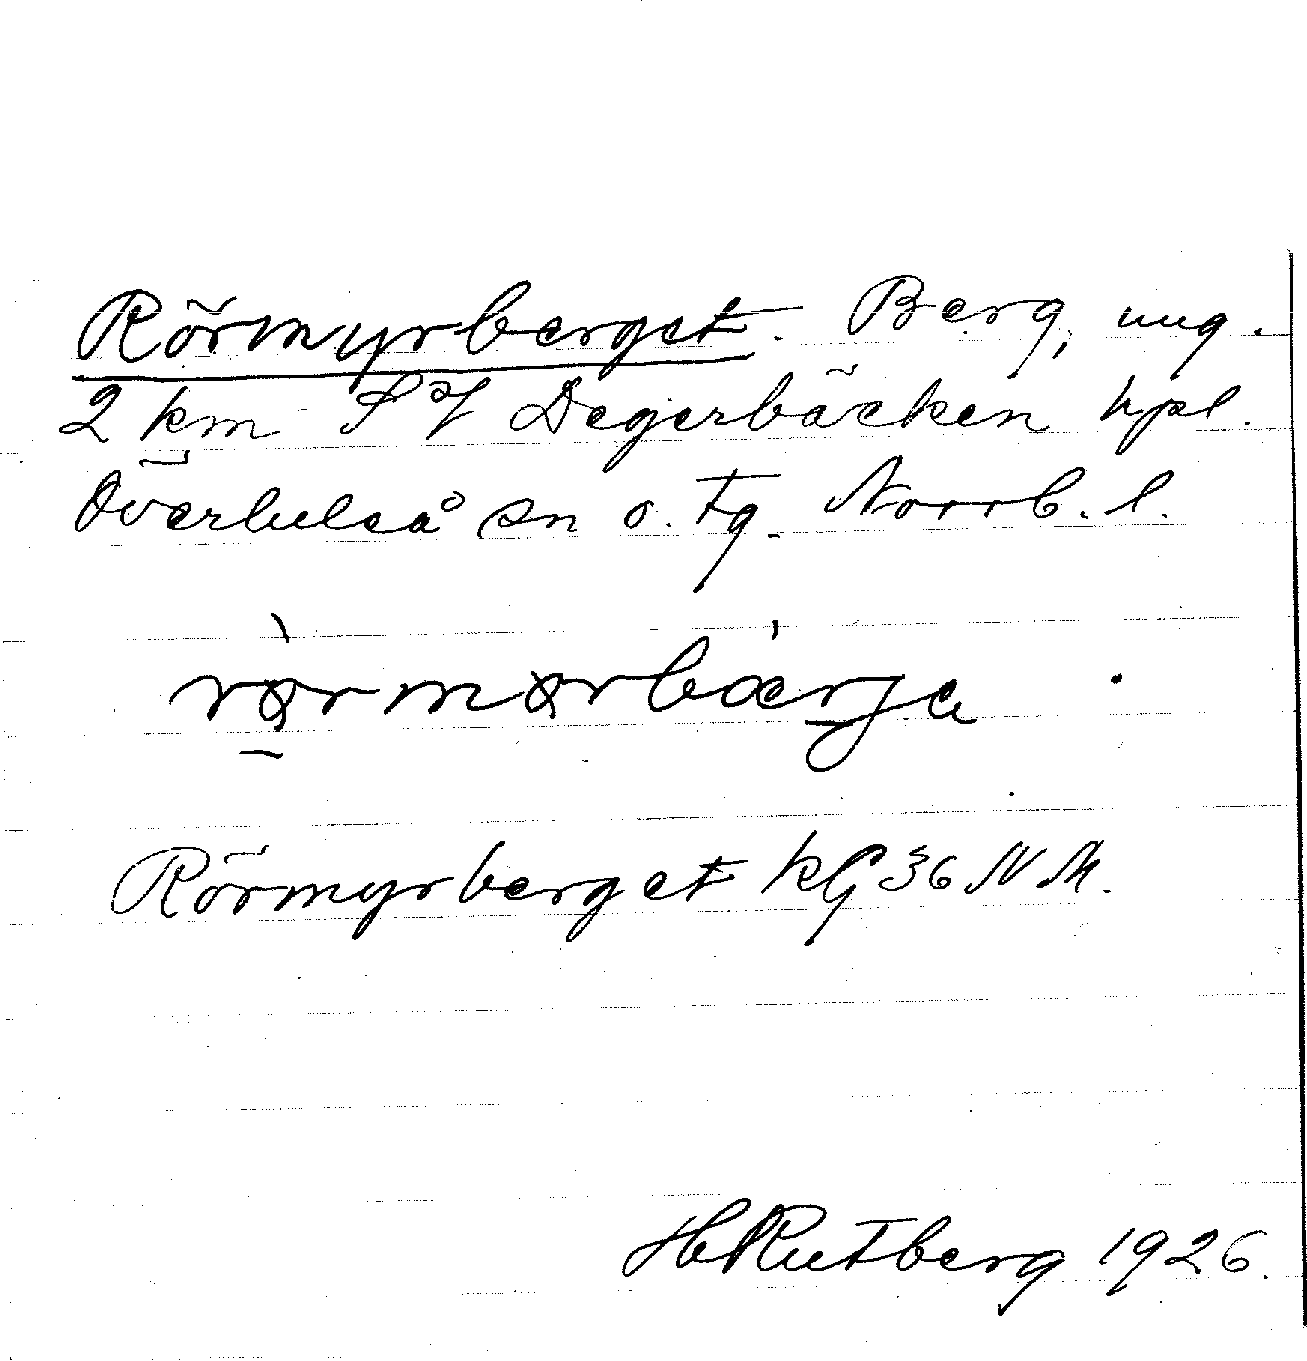 Rörmyrberget. Berg, ung.
2 km S of Degerbäcken hpl.
Överluleå sn o. tg. Norrb. l.
Rörmyrberget kG 36 N M.
H Rutberg 1926.